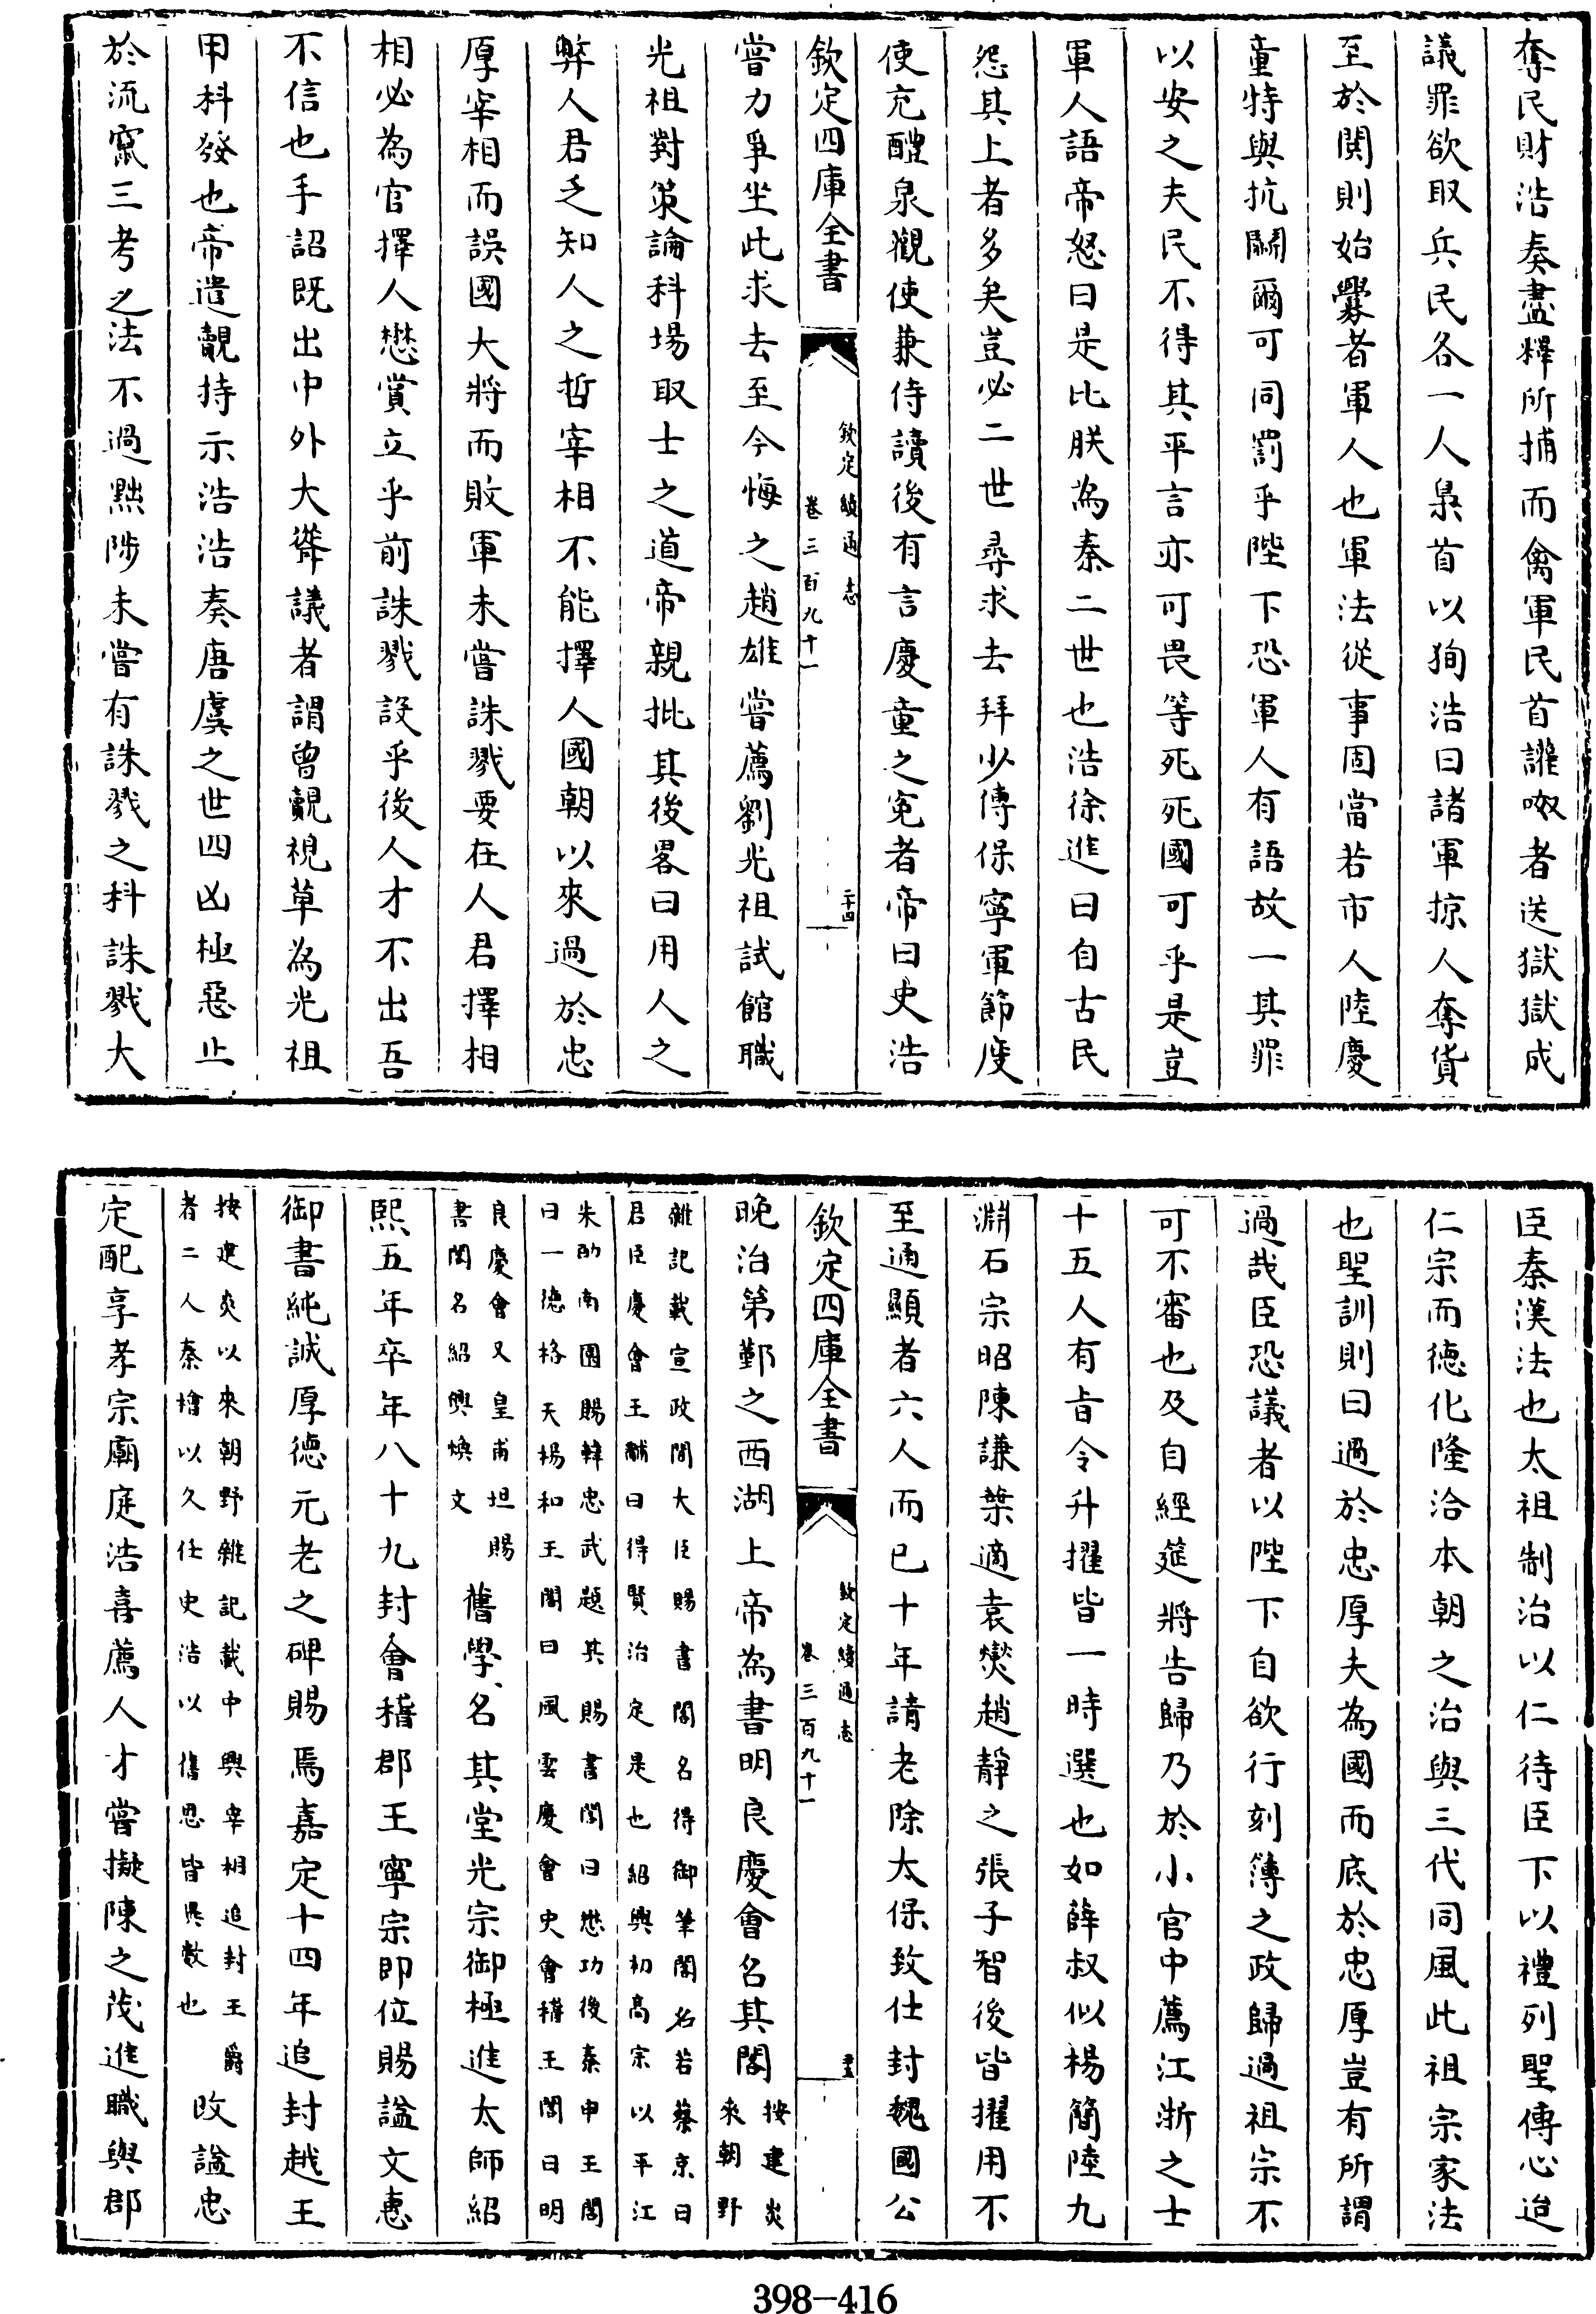 奪民財浩奏盡釋所捕而禽軍民首讙呶者送獄獄成
議罪欲取兵民各一人梟首以狥浩曰諸軍掠人奪貨
至於鬨則始釁者軍人也軍法從事固當若市人陸慶
童特與抗鬭爾可同罰乎陛下恐軍人有語故一其罪
以安之夫民不得其平言亦可畏等死死國可乎是豈
軍人語帝怒曰是比朕為秦二世也浩徐進曰自古民
怨其上者多矣豈必二世尋求去拜少傅保寧軍節度
使充醴泉觀使兼侍讀後有言慶童之寃者帝曰史浩
欽定四庫全書 欽定續通志 卷三百九十一 二十四
嘗力爭坐此求去至今悔之趙雄嘗薦劉光祖試館職
光祖對策論科場取士之道帝親批其後畧曰用人之
弊人君乏知人之哲宰相不能擇人國朝以來過於忠
厚宰相而誤國大將而敗軍未嘗誅戮要在人君擇相
相必為官擇人懋賞立乎前誅戮設乎後人才不出吾
不信也手詔既出中外大聳議者謂曾覿視草為光祖
甲科發也帝遣覿持示浩浩奏唐虞之世四凶極惡止
於流竄三考之法不過黜陟未嘗有誅戮之科誅戮大
臣秦漢法也太祖制治以仁待臣下以禮列聖傳心迨
仁宗而德化隆洽本朝之治與三代同風此祖宗家法
也聖訓則曰過於忠厚夫為國而底於忠厚豈有所謂
過哉臣恐議者以陛下自欲行刻薄之政歸過祖宗不
可不審也及自經筵將告歸乃於小官中薦江浙之士
十五人有旨令升擢皆一時選也如薛叔似楊簡陸九
淵石宗昭陳謙葉適袁燮趙靜之張子智後皆擢用不
至通顯者六人而已十年請老除太保致仕封魏國公
欽定四庫全書 欽定續通志 卷三百九十一 二十五
晚治第鄞之西湖上帝為書明良慶會名其閣按建炎來朝野
雜記載宣政間大臣賜書閣名得御筆閣名若蔡京曰
君臣慶會王黼曰得賢治定是也紹興初高宗以平江
朱勔南園賜韓忠武題其賜書閣曰懋功後秦申王閣
曰一德格天楊和王閣曰風雲慶會史會稽王閣曰明
良慶會又皇甫坦賜
書閣名紹興煥文
舊學名其堂光宗御極進太師紹
熙五年卒年八十九封會稽郡王寧宗即位賜諡文惠
御書純誠厚德元老之碑賜焉嘉定十四年追封越王
按建炎以來朝野雜記載中興宰相追封王爵
者二人秦檜以久任史浩以舊恩皆異數也
改諡忠
定配享孝宗廟庭浩喜薦人才嘗擬陳之茂進職與郡
398-416